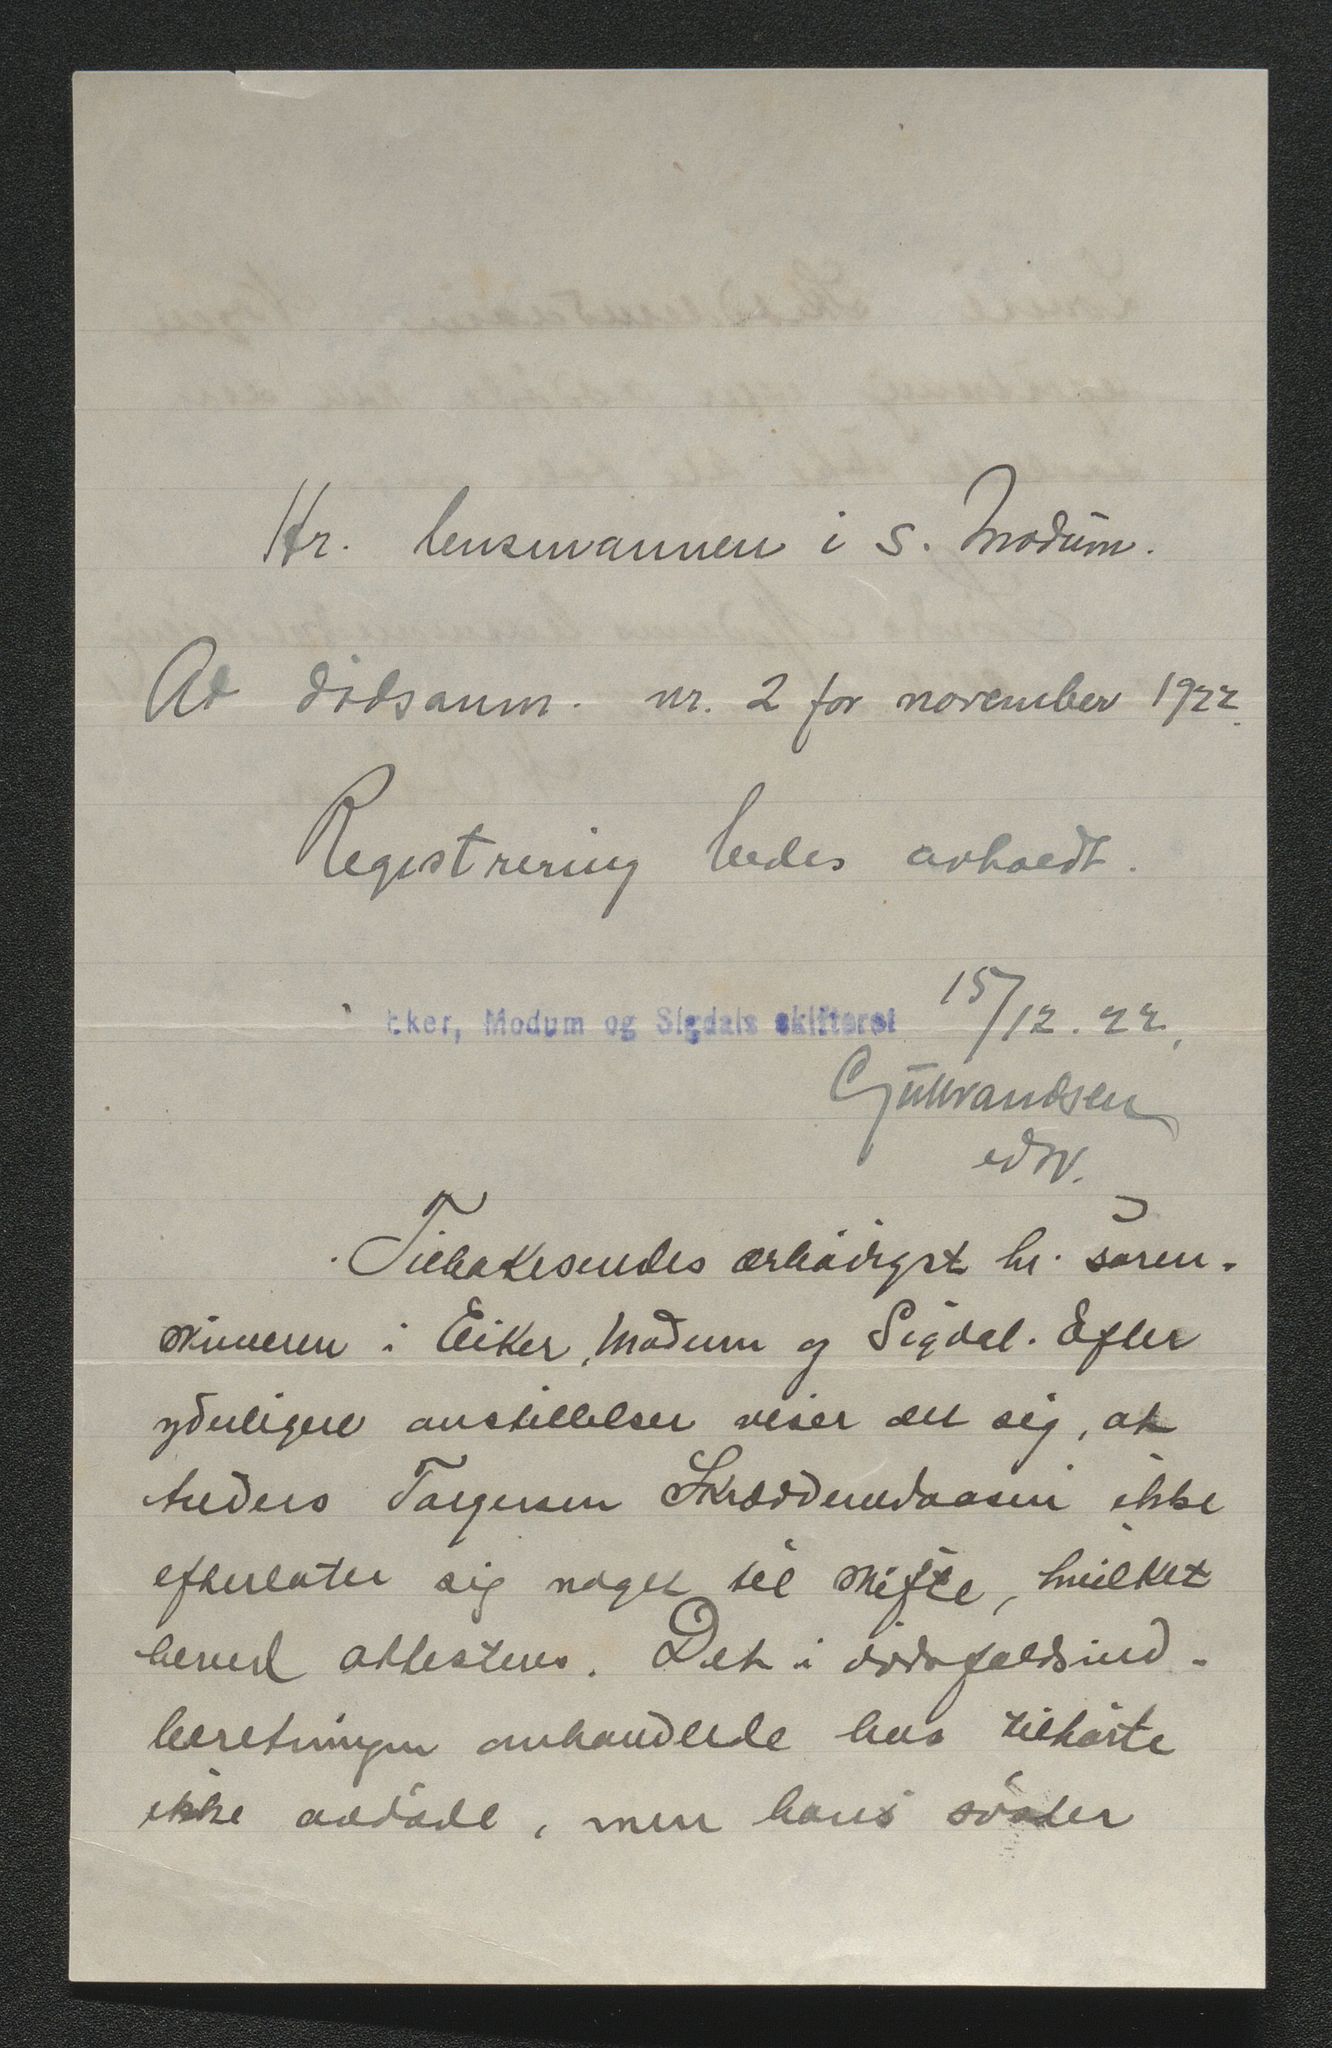 Hr. lensmannen i S. Modum.
Ad dödsanm. nr. 2 for november 1922.
Registrering bedes avholdt.
Eker, Modum og Sigdals skifteret 15/12. 22.
Gullvandsen
edv.
Tilbakesendes ærbödigst hr. soren-
skriveren i Eiker, Modum og Sigdal. Efter
yderligere anstillelser viser det sig, at
Anders Torgersen Skrædderudaasen ikke
efterlater sig noget til skifte, hvilket
herved attesteres. Det i dödsfaldsind-
beretningen omhandlede hus tilhörte
ikke avdöde, men hans söster